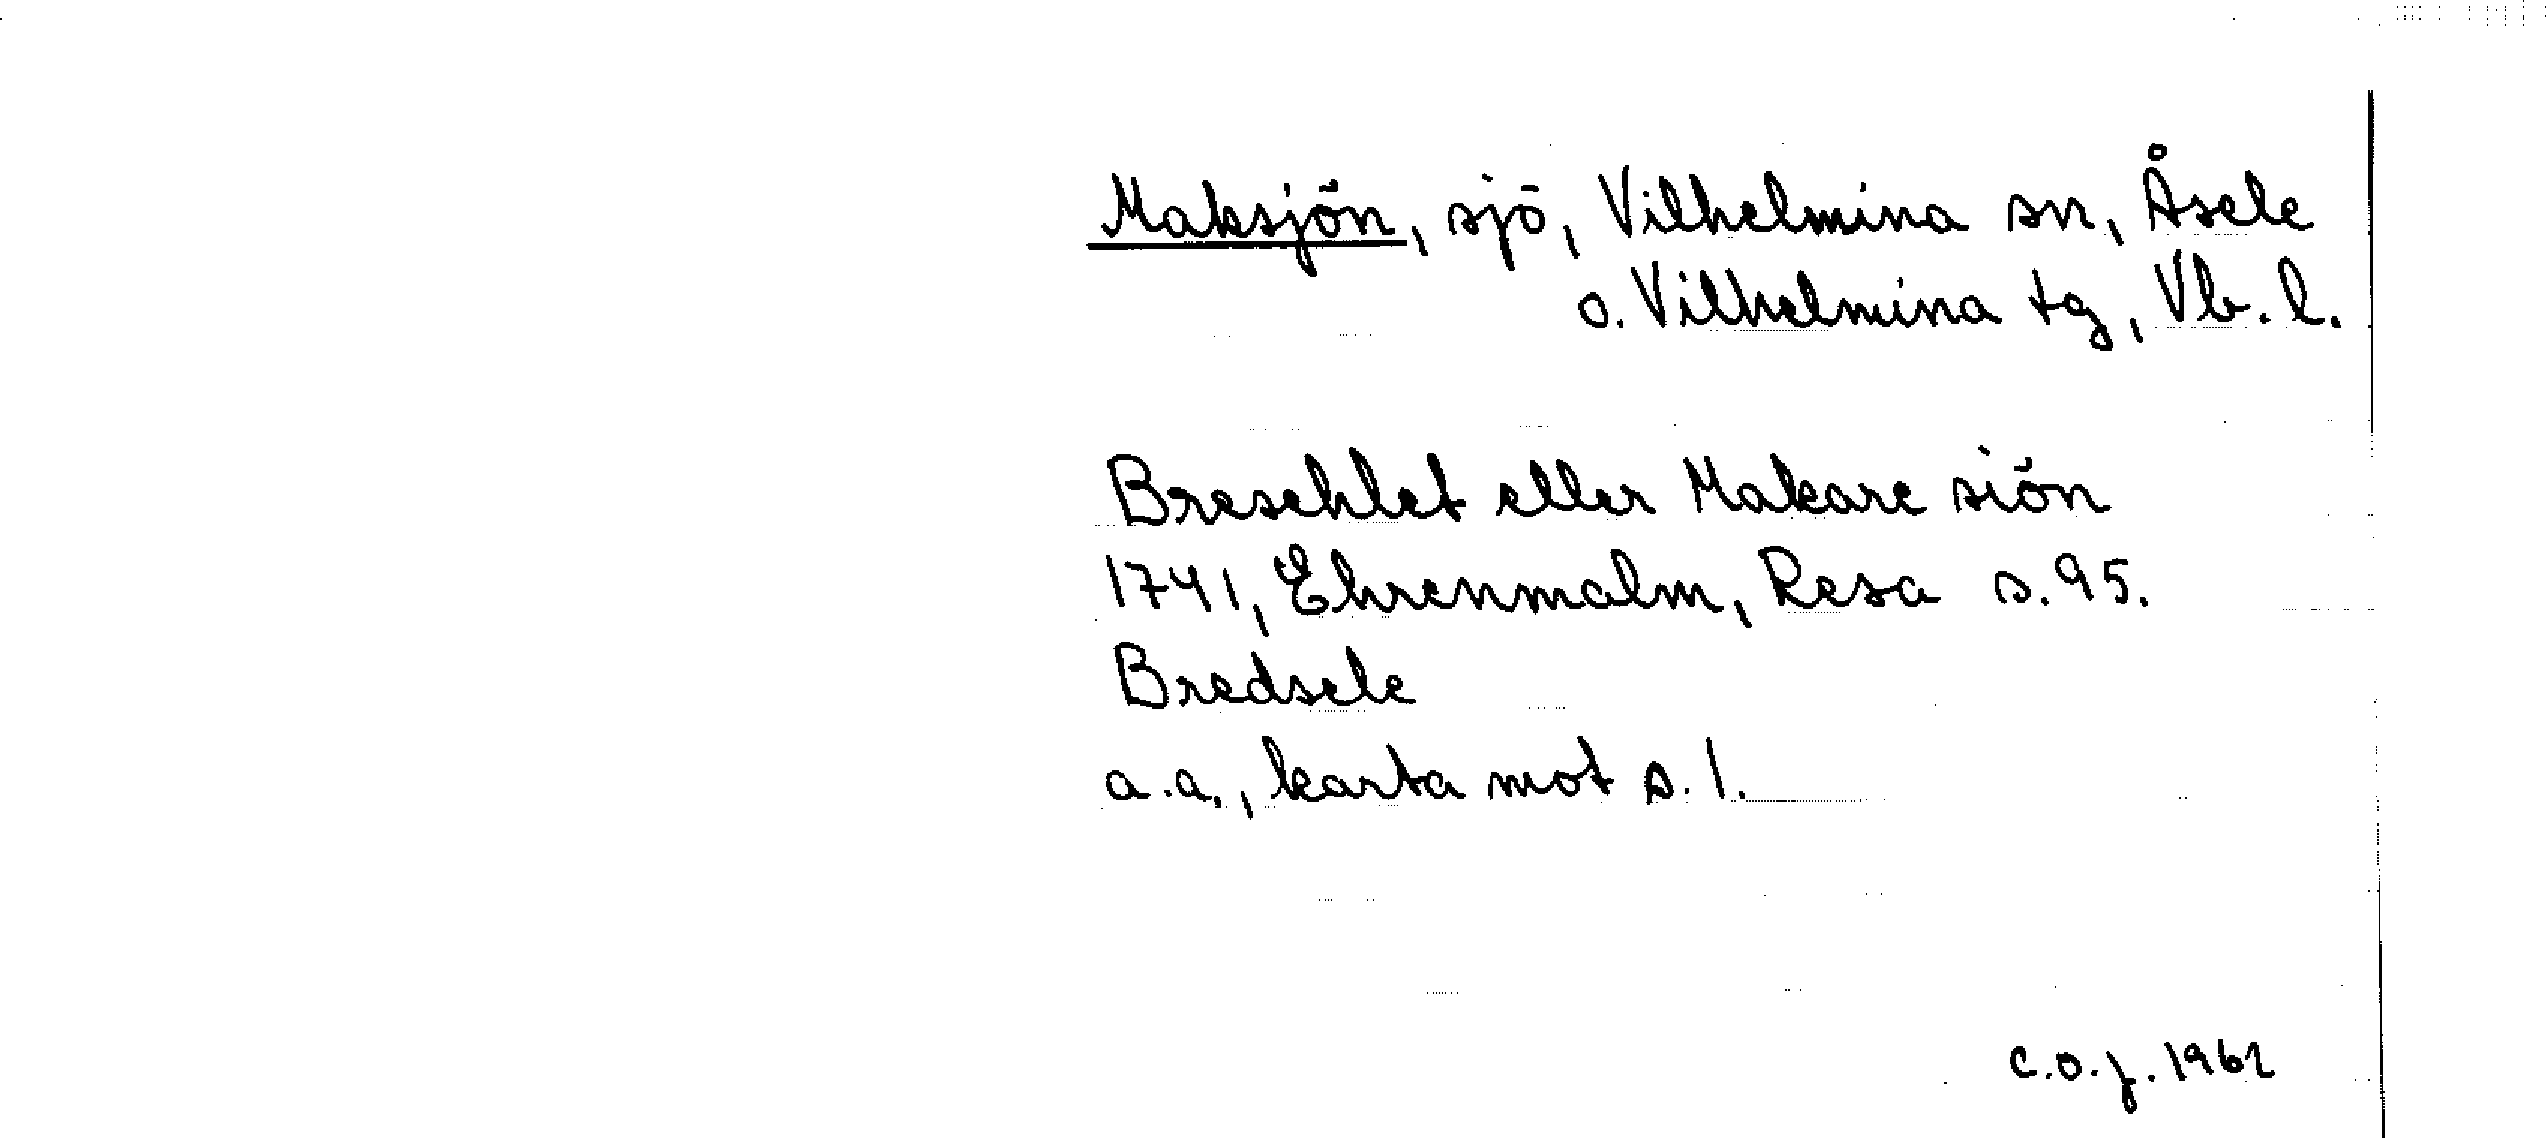 Maksjön, sjö, Vilhelmina sn, Åsele
o. Vilhelmina tg, Vb. l.
Breschlet eller Makare siön
1741, Ehrenmalm, Resa s. 95.
Bredsele
a.a., karta mot s. 1.
C.O.J. 1962